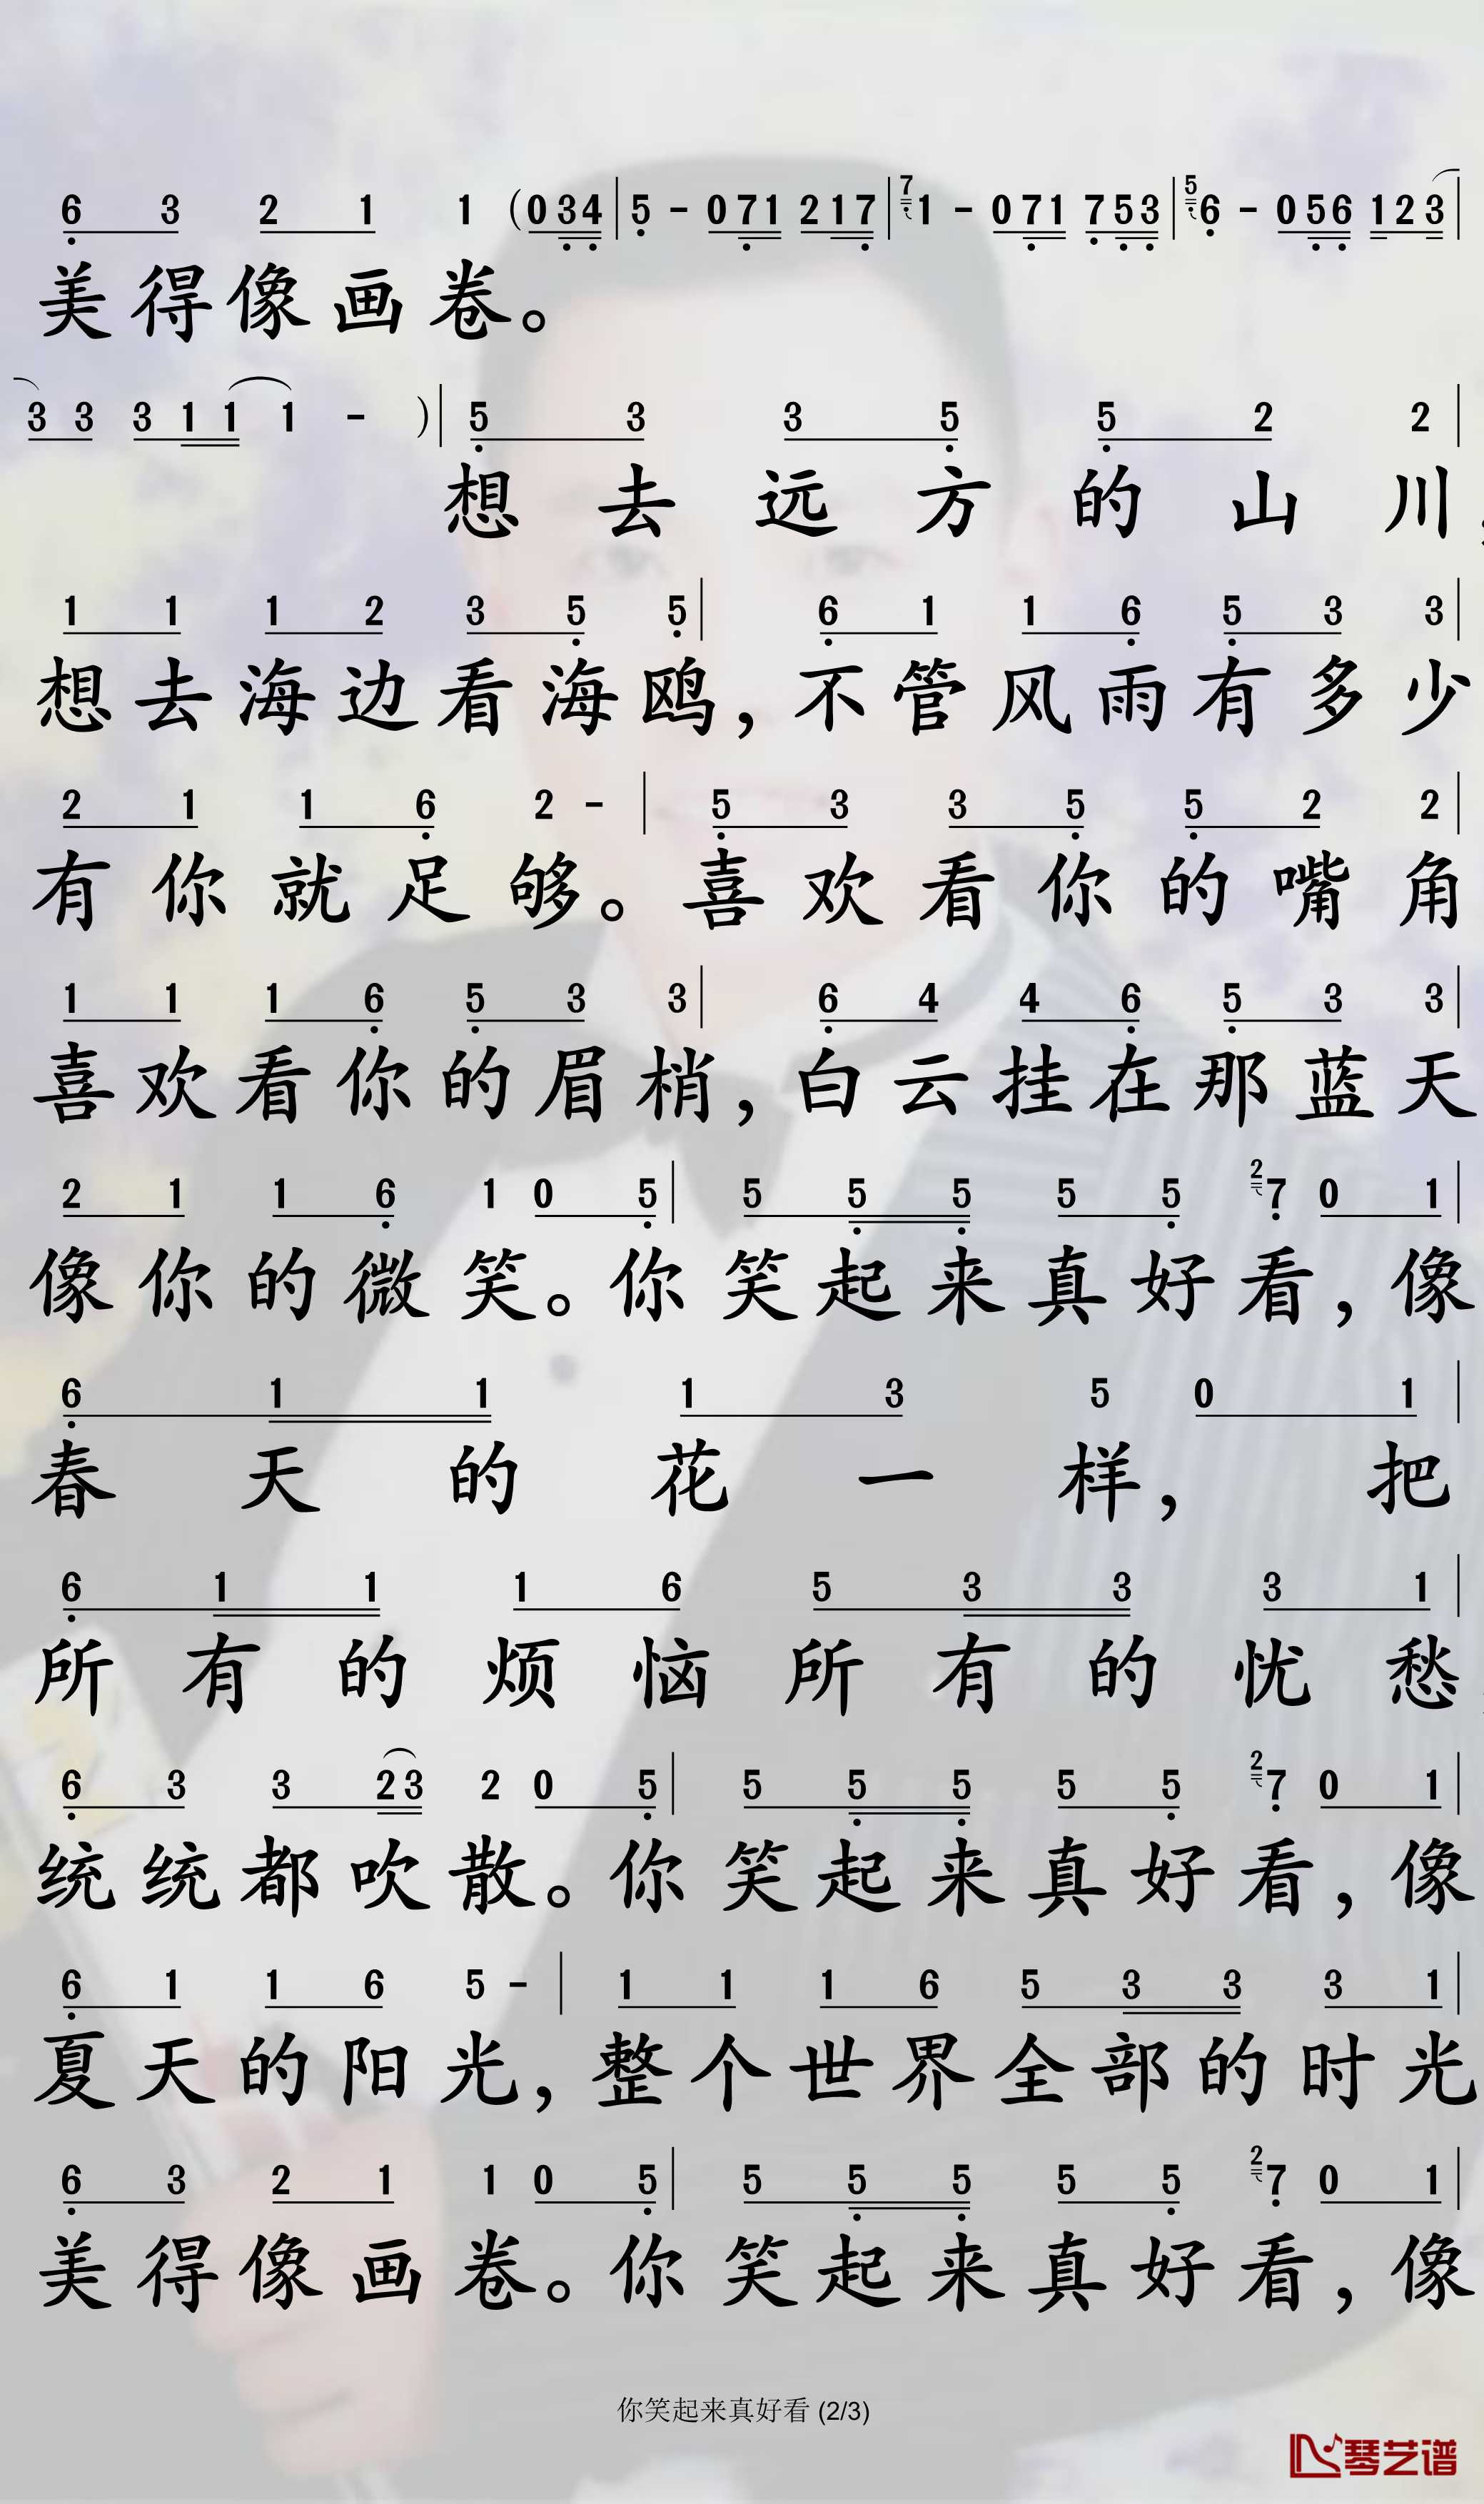 6 3 2 1 1 (0 3 4 | 5 - 0 7 1 2 1 7 | 7 1 - 0 7 1 7 5 3 | 5 6 - 0 5 6 1 2 3 |
美得像画卷。
3 3 3 1 1 1 - ) | 5 3 3 5 5 2 2 |
想去远方的山川,
1 1 1 2 3 5 5 | 6 1 1 6 5 3 3 |
想去海边看海鸥,不管风雨有多少
2 1 1 6 2 - | 5 3 3 5 5 2 2 |
有你就足够。喜欢看你的嘴角
1 1 1 6 5 3 3 | 6 4 4 6 5 3 3 |
喜欢看你的眉梢,白云挂在那蓝天
2 1 1 6 1 0 5 | 5 5 5 5 5 2 7 0 1 |
像你的微笑。你笑起来真好看,像
6 1 1 1 3 5 0 1 |
春天的花一样,把
6 1 1 1 6 5 3 3 3 1 |
所有的烦恼所有的忧愁
6 3 3 2 3 2 0 5 | 5 5 5 5 5 2 7 0 1 |
统统都吹散。你笑起来真好看,像
6 1 1 6 5 - | 1 1 1 6 5 3 3 3 1 |
夏天的阳光,整个世界全部的时光
6 3 2 1 1 0 5 | 5 5 5 5 5 2 7 0 1 |
美得像画卷。你笑起来真好看,像
你笑起来真好看 (2/3)
琴艺谱